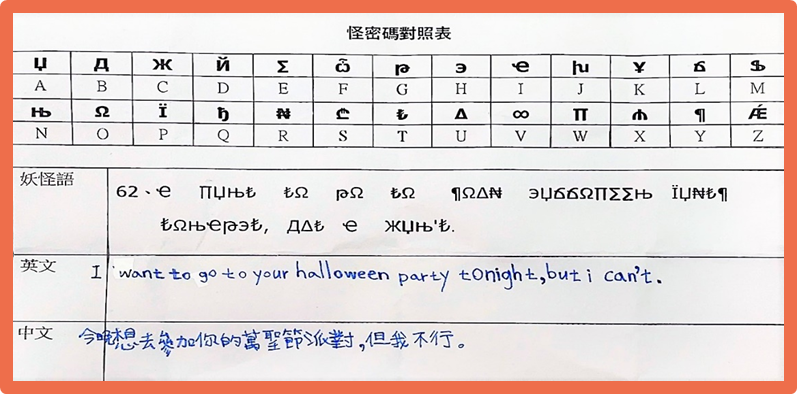 怪密碼對照表
Џ Д Ж Й Σ ѽ թ э ҽ խ ¥ ճ ֆ
A B C D E F G H I J K L M
Њ Ω Ï ђ ₦ ₾ ₺ Δ ∞ Π ₼ ¶ Ǽ
N O P Q R S T U V W X Y Z
妖怪語
62、ҽ ΠЏЊ₺ ₺Ω թΩ ₺Ω ¶ΩΔ₦ эЏճճΩΠΣΣЊ ÏЏ₦₺¶
₺ΩЊҽթэ₺, ДΔ₺ ҽ ЖЏЊ'₺.
英文 I want to go to your halloween party tonight,but i can't.
中文 今晚想去參加你的萬聖節派對,但我不行。